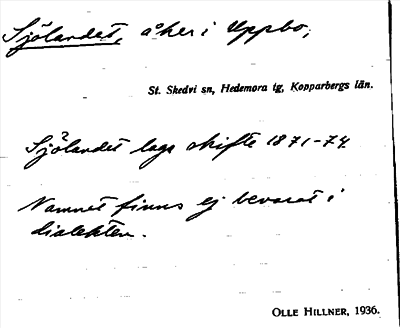 Sjölandet, åker i Uppbo,
St. Skedvi sn, Hedemora tg, Kopparbergs län.
Sjölandet laga skifte 1871-74.
Namnet finns ej bevarat i
dialekten.
OLLE HILLNER, 1936.